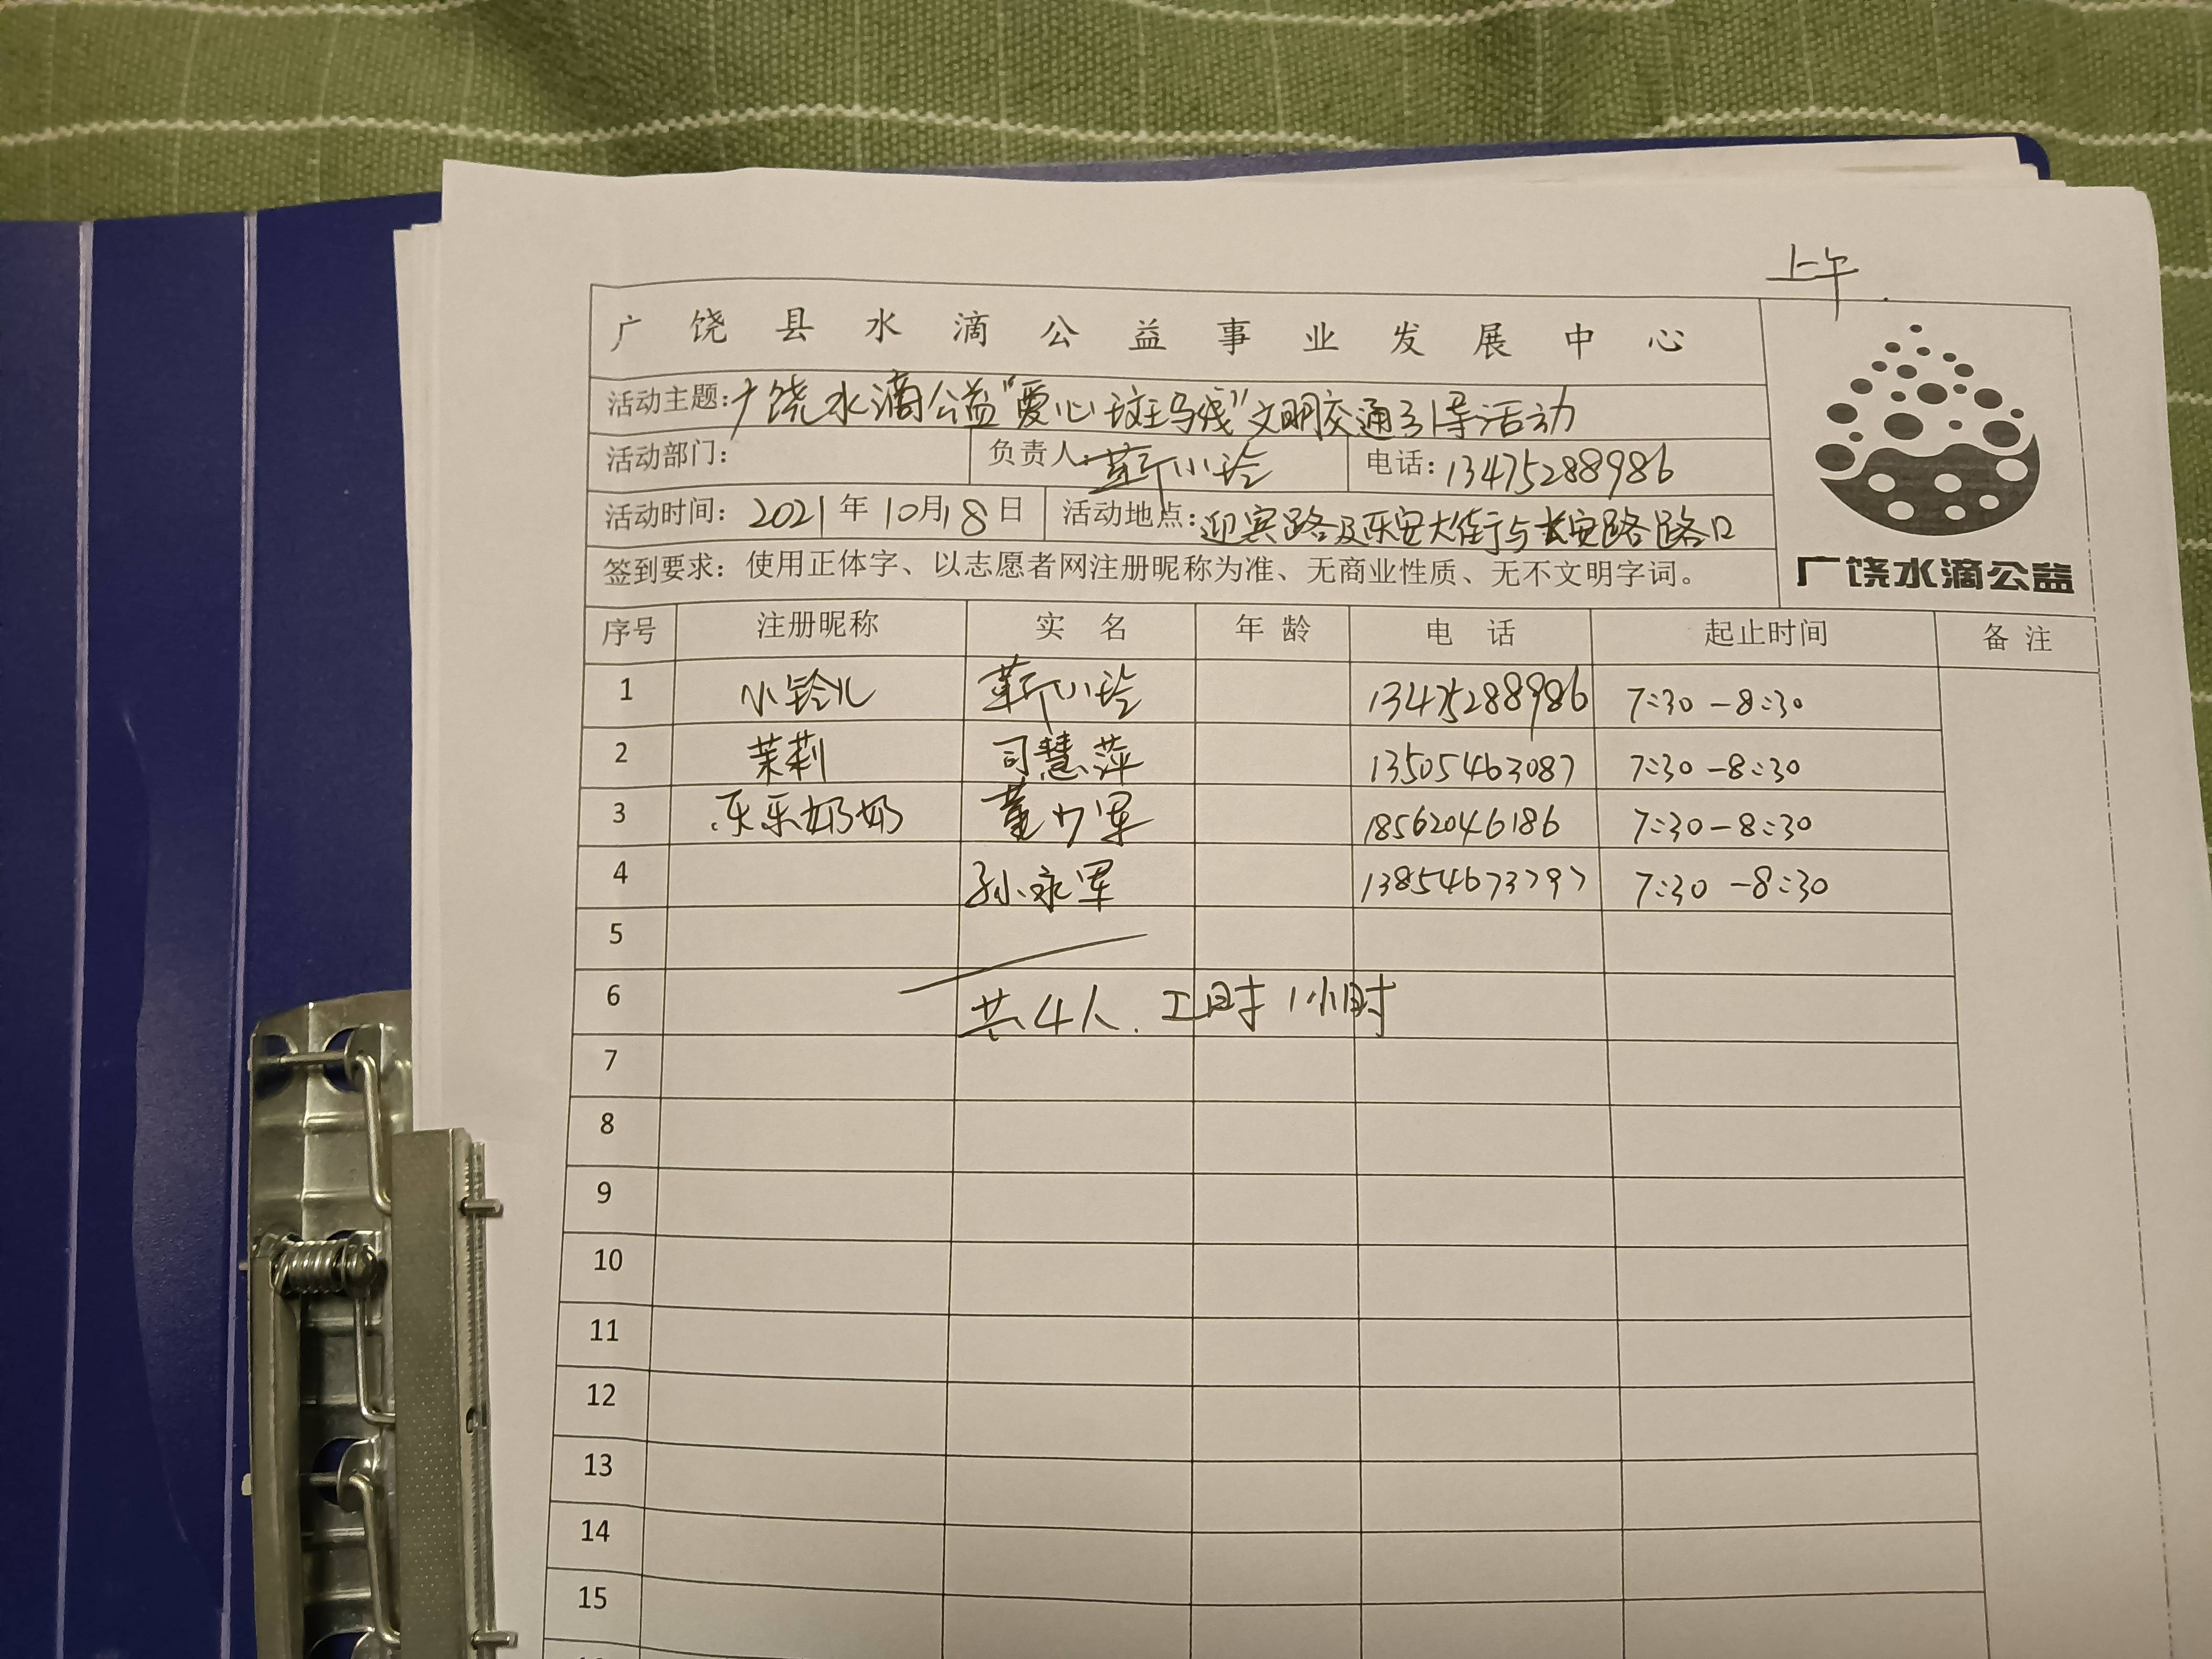 上午.
广饶县水滴公益事业发展中心
活动主题:广饶水滴公益"爱心斑马线"文明交通引导活动
活动部门: 负责人:靳小玲 电话:13475288986
活动时间: 2021年10月18日 活动地点:迎宾路及乐安大街与长安路路口
签到要求: 使用正体字、以志愿者网注册昵称为准、无商业性质、无不文明字词。
广饶水滴公益
序号 注册昵称 实名 年龄 电话 起止时间 备注
1 小铃儿 靳小玲 13475288986 7:30-8:30
2 茉莉 司慧萍 13505463087 7:30-8:30
3 乐乐奶奶 董力军 18562046186 7:30-8:30
4 孙永军 13854673797 7:30-8:30
5
6 共4人. 工时1小时
7
8
9
10
11
12
13
14
15